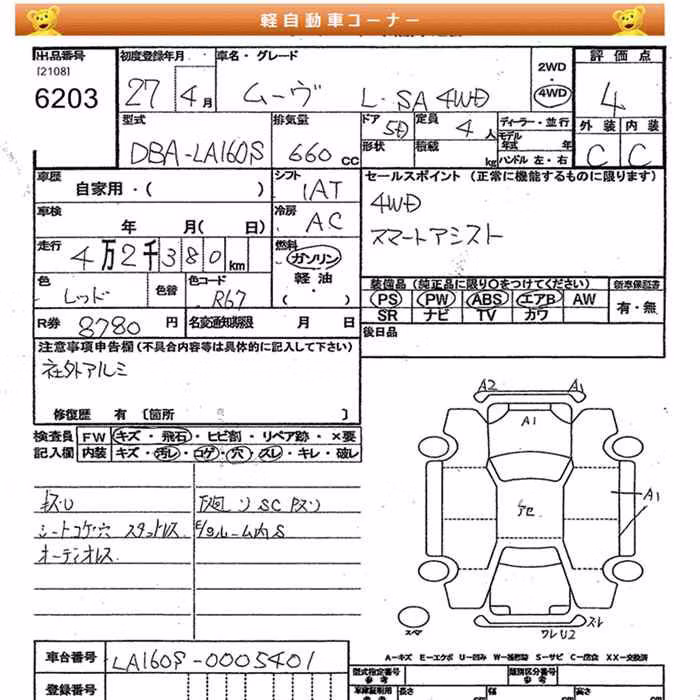 軽自動車コーナー
出品番号 初度登録年月 車名・グレード 2WD・4WD 評価点
[2108]
6203 27年 4月 ムーヴ L・SA 4WD 4
型式 排気量 ドア 定員 ディーラー・並行 外装 内装
DBA-LA160S 660cc 5D 4人 モデル年式 年 C C
形状 積載 kg ハンドル 左・右
車歴 シフト セールスポイント(正常に機能するものに限ります)
自家用・( ) IAT 4WD
車検 冷房 スマートアシスト
年 月( 日) AC
走行 燃料
4万2千380km ガソリン・軽油・( )
色 色替 色コード 装備品(純正品に限り○をつけてください) 新車保証書
レッド R67 PS PW ABS エアB AW 有・無
SR ナビ TV カワ
R券 8780円 名変通知期限 月 日 後日品
注意事項申告欄(不具合内容等は具体的に記入して下さい)
社外アルミ
修復歴 有[箇所 ]
検査員 FW キズ・飛石・ヒビ割・リペア跡・×要
記入欄 内装 キズ・汚レ・コゲ・穴・スレ・キレ・破レ
キズU
シートコゲ穴 スタットレス
オーディオレス
A2 A1
A1
A1
スレ
ワレU2
A-キズ E-エクボ U-凹み W-補修跡 S-サビ C-腐食 XX-交換済
車台番号 LA160S-0005401
型式指定番号 類別区分番号
参考 参考
登録番号 長さ 幅 高さ